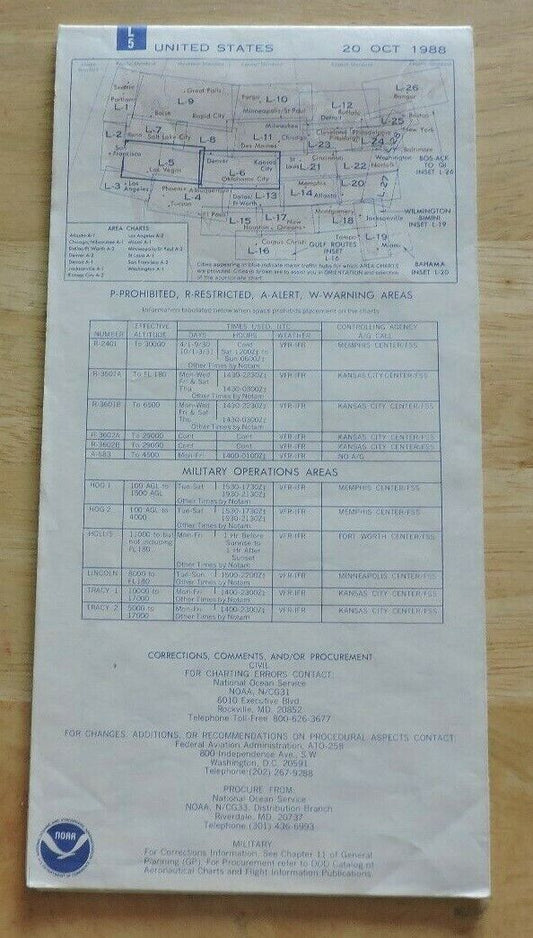 L
5
UNITED STATES
20 OCT 1988
Seattle
Portland
L-1
Great Falls
L-9
Boise
Rapid City
Fargo
L-10
Minneapolis/St Paul
Milwaukee
L-11
Des Moines
Chicago
L-12
Buffalo
Detroit
L-26
Bangor
L-25
Boston
New York
L-2
L-7
Salt Lake City
L-8
L-23
Cleveland
Philadelphia
L-24
L-28
Baltimore
San Francisco
L-5
Las Vegas
Denver
L-6
Kansas City
Oklahoma City
St Louis
Cincinnati
L-21
L-22
Washington
Norfolk
BOS-ACK
TO QI
INSET L-26
L-3
Los Angeles
Phoenix
L-4
Tucson
Albuquerque
El Paso
Dallas/
Ft Worth
L-13
L-15
L-17
Houston
New Orleans
Memphis
L-14
Atlanta
L-20
L-27
Montgomery
L-18
Jacksonville
WILMINGTON
BIMINI
INSET L-19
L-16
Corpus Christi
GULF ROUTES
INSET
L-16
Tampa
L-19
Miami
BAHAMA
INSET L-20
AREA CHARTS
Atlanta A-1
Chicago/Milwaukee A-1
Dallas/Ft Worth A-2
Denver A-2
Detroit A-1
Jacksonville A-1
Kansas City A-2
Los Angeles A-2
Miami A-1
Minneapolis/St Paul A-2
St Louis A-1
San Francisco A-2
Washington A-1
Cities appearing in blue indicate major traffic hubs for which AREA CHARTS
are provided. Cities in brown are to assist you in ORIENTATION and selection
of the appropriate chart.
P-PROHIBITED, R-RESTRICTED, A-ALERT, W-WARNING AREAS
Information tabulated below when space prohibits placement on the charts
NUMBER EFFECTIVE ALTITUDE TIMES USED UTC DAYS HOURS WEATHER CONTROLLING AGENCY A/G CALL
R-2401 To 30000 4/1-9/30 Cont VFR-IFR MEMPHIS CENTER/FSS
10/1-3/31 Sat 1200Z‡ to
Sun 0600Z‡
Other Times by Notam
R-3601A To FL 180 Mon-Wed 1430-2230Z‡ VFR-IFR KANSAS CITY CENTER/FSS
Fri & Sat
Thu 1430-0300Z‡
Other Times by Notam
R-3601B To 6500 Mon-Wed 1430-2230Z‡ VFR-IFR KANSAS CITY CENTER/FSS
Fri & Sat
Thu 1430-0300Z‡
Other Times by Notam
R-3602A To 29000 Cont Cont VFR-IFR KANSAS CITY CENTER/FSS
R-3602B To 29000 Cont Cont VFR-IFR KANSAS CITY CENTER/FSS
A-683 To 4500 Mon-Fri 1400-0100Z‡ VFR-IFR NO A/G
MILITARY OPERATIONS AREAS
HOG 1 100 AGL to Tue-Sat 1530-1730Z‡ VFR-IFR MEMPHIS CENTER/FSS
1500 AGL 1930-2130Z‡
Other Times by Notam
HOG 2 100 AGL to Tue-Sat 1530-1730Z‡ VFR-IFR MEMPHIS CENTER/FSS
4000 1930-2130Z‡
Other Times by Notam
HOLLIS 11000 to but Mon-Fri 1 Hr Before VFR-IFR FORT WORTH CENTER/FSS
not including Sunrise to
FL180 1 Hr After
Sunset
Other Times by Notam
LINCOLN 8000 to Tue-Sun 1500-2200Z‡ VFR-IFR MINNEAPOLIS CENTER/FSS
FL180 Other Times by Notam
TRACY 1 10000 to Mon-Fri 1400-2300Z‡ VFR-IFR KANSAS CITY CENTER/FSS
17000 Other Times by Notam
TRACY 2 5000 to Mon-Fri 1400-2300Z‡ VFR-IFR KANSAS CITY CENTER/FSS
17000 Other Times by Notam
CORRECTIONS, COMMENTS, AND/OR PROCUREMENT
CIVIL
FOR CHARTING ERRORS CONTACT:
National Ocean Service
NOAA, N/CG31
6010 Executive Blvd
Rockville, MD. 20852
Telephone Toll-Free 800-626-3677
FOR CHANGES, ADDITIONS, OR RECOMMENDATIONS ON PROCEDURAL ASPECTS CONTACT:
Federal Aviation Administration, ATO-258
800 Independence Ave., S.W.
Washington, D.C. 20591
Telephone (202) 267-9288
PROCURE FROM:
National Ocean Service
NOAA, N/CG33, Distribution Branch
Riverdale, MD. 20737
Telephone (301) 436-6993
MILITARY
For Corrections Information, See Chapter 11 of General
Planning (GP). For Procurement refer to DOD Catalog of
Aeronautical Charts and Flight Information Publications.
NOAA